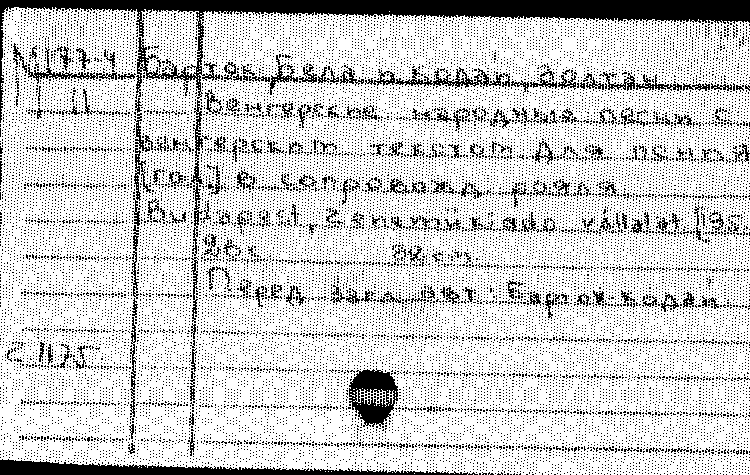 177-4 Барток, Бела и Кодаи, Золтан
II Венгерские народные песни с
венгерским текстом для пения
[гол.] в сопровожд. рояля.
Budapest, Zenemükiadó vállalat, [195
28 см.
Перед загл. авт.: Барток-Кодаи